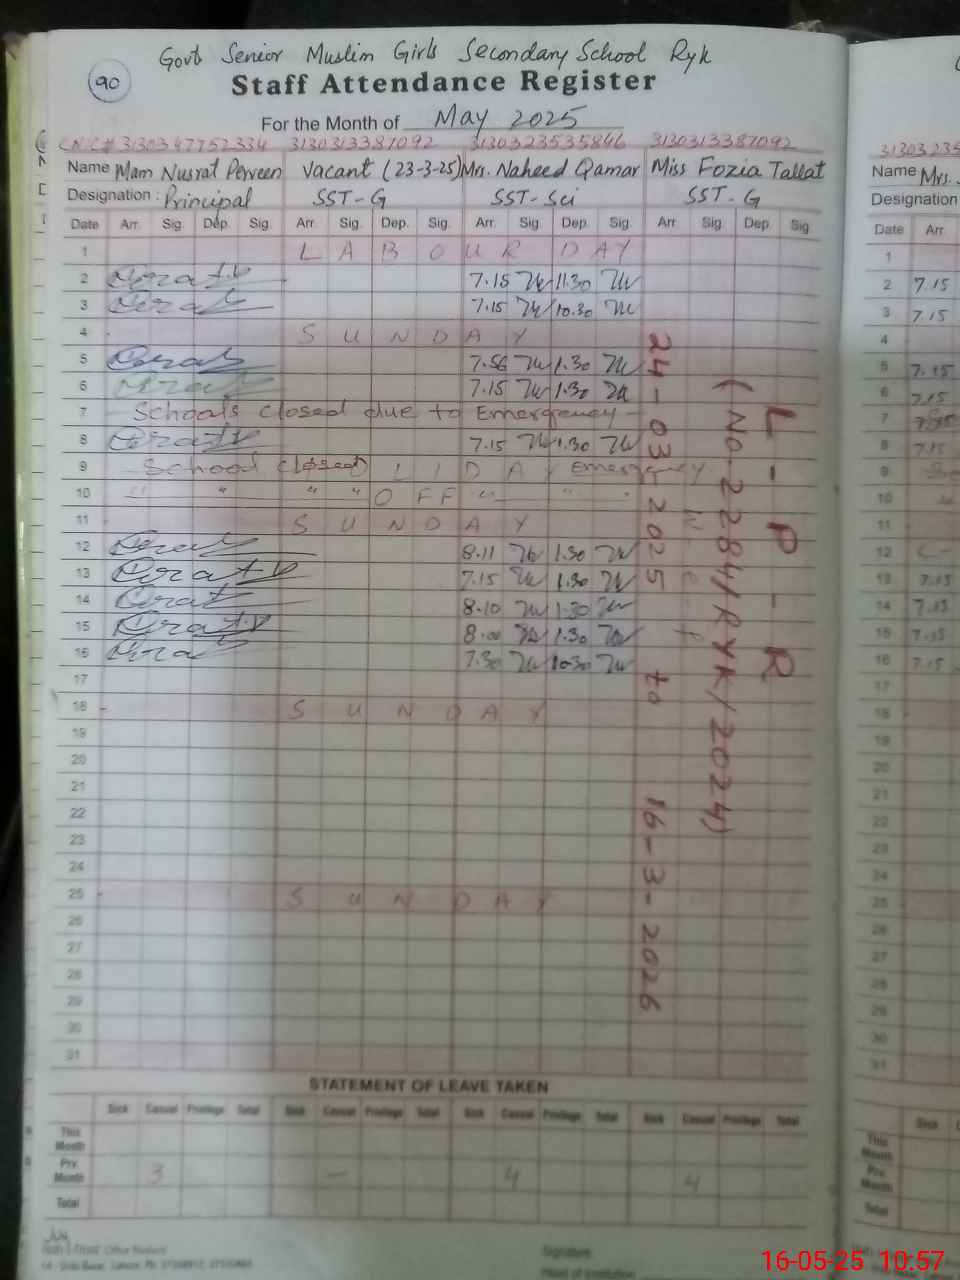 90
Govt Senior Muslim Girls Secondary School Ryk
Staff Attendance Register
For the Month of May 2025
CNIC# 3130347752334 3130313387092 3130323535846 3130313387092
Name Mam Nusrat Perveen Vacant (23-3-25) Mrs. Naheed Qamar Miss Fozia Tallat
Designation: Principal SST-G SST-Sci SST-G
Date Arr. Sig. Dep. Sig. Arr. Sig. Dep. Sig. Arr. Sig. Dep. Sig. Arr Sig. Dep Sig
1 LABOUR DAY
2 7.15 11.30
3 7.15 10.30
4 SUNDAY
5 7.56 1.30
6 7.15 1.30
7 Schools closed due to Emergency
8 7.15 1.30
9 School closed LIDAY Emergency
10 " " " " OFF " "
11 SUNDAY
12 8.11 1.30
13 7.15 1.30
14 8.10 1.30
15 8.00 1.30
16 7.30 10.30
17
18 SUNDAY
19
20
21
22
23
24
25 SUNDAY
26
27
28
29
30
31
L-P-R
(No.2284/RYK/2024)
w.e.f
24-03-2025 to 16-3-2026
STATEMENT OF LEAVE TAKEN
Sick Casual Privilege Total Sick Casual Privilege Total Sick Casual Privilege Total Sick Casual Privilege Total
This Month
Prv. Month 3 — 4 4
Total
Signature
Head of Institution
31303235
Name Mrs.
Designation
Date Arr
1
2 7.15
3 7.15
4
5 7.15
6 7.15
7
8 7.15
9
10
11
12
13 7.15
14 7.15
15 7.15
16 7.15
17
18
19
20
21
22
23
24
25
26
27
28
29
30
31
Sick
This Month
Prv. Month
Total
16-05-25 10:57